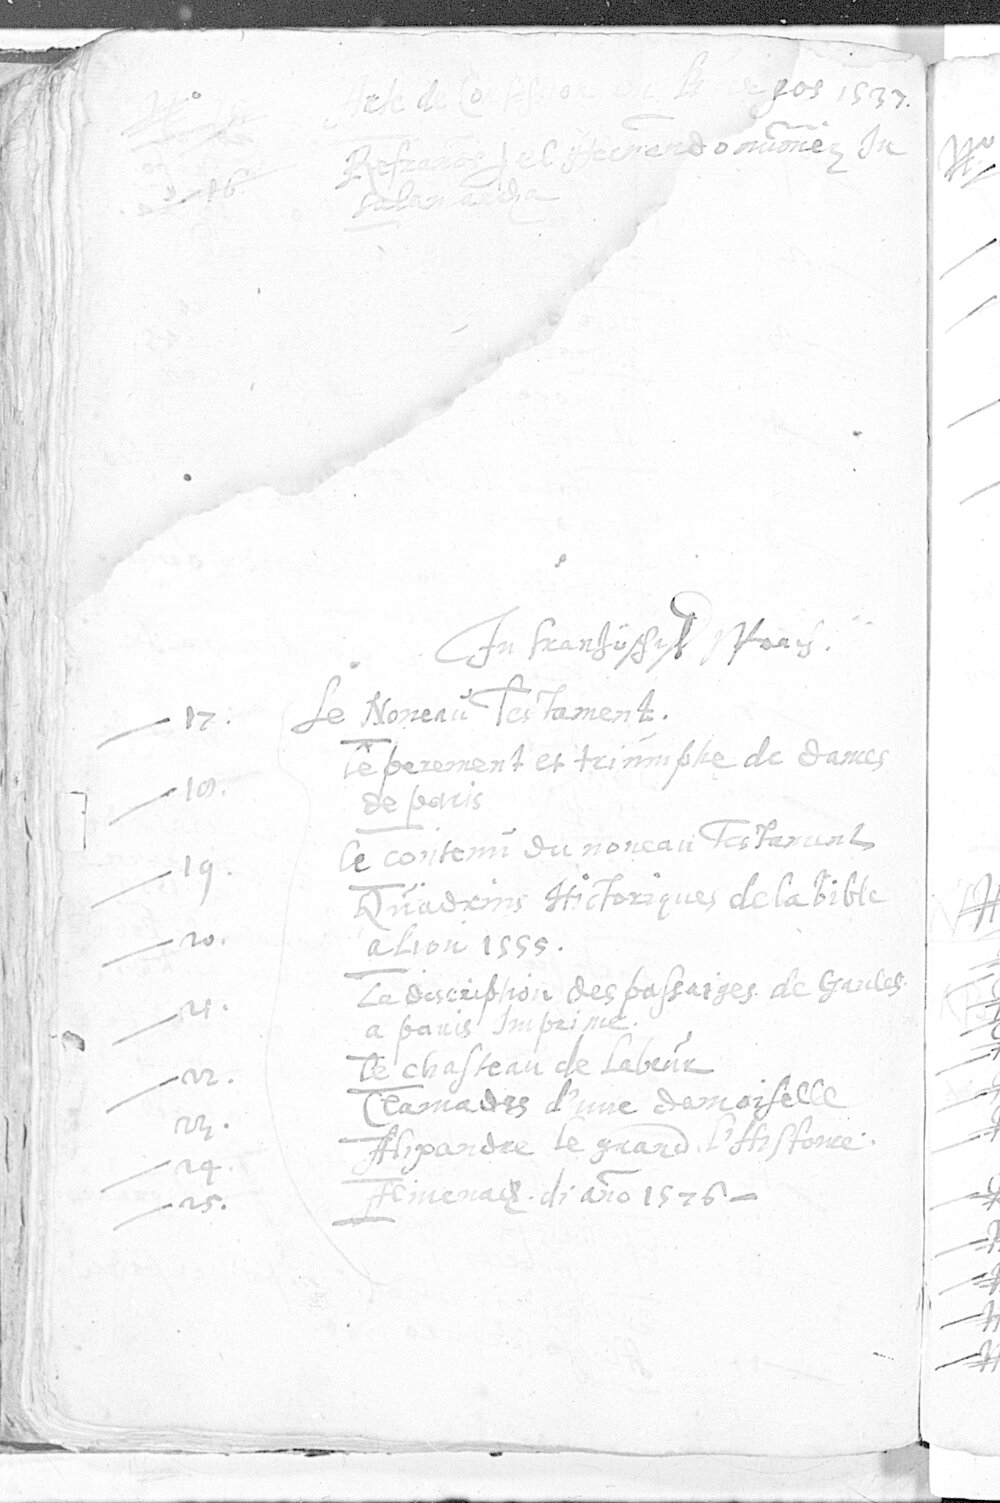 Arte de Confession en Burgos 1537.
16 Refranes del Hernendo nunnez In
Salamancha
In franhösischer sprach.
17. Le Noueau Testament.
18. Le parement et triumphe de dames
de paris
19. Le contenu du noueau Testament
20. Quadrins Historiques de la bible
a Lion 1555.
21. La discription des passaiges de Gaules
a paris Imprimé.
22. Le chasteau de Labeur
23. Clamades d'une damoiselle
24. Alixandre le grand l'Histoire.
25. Almenach di año 1576